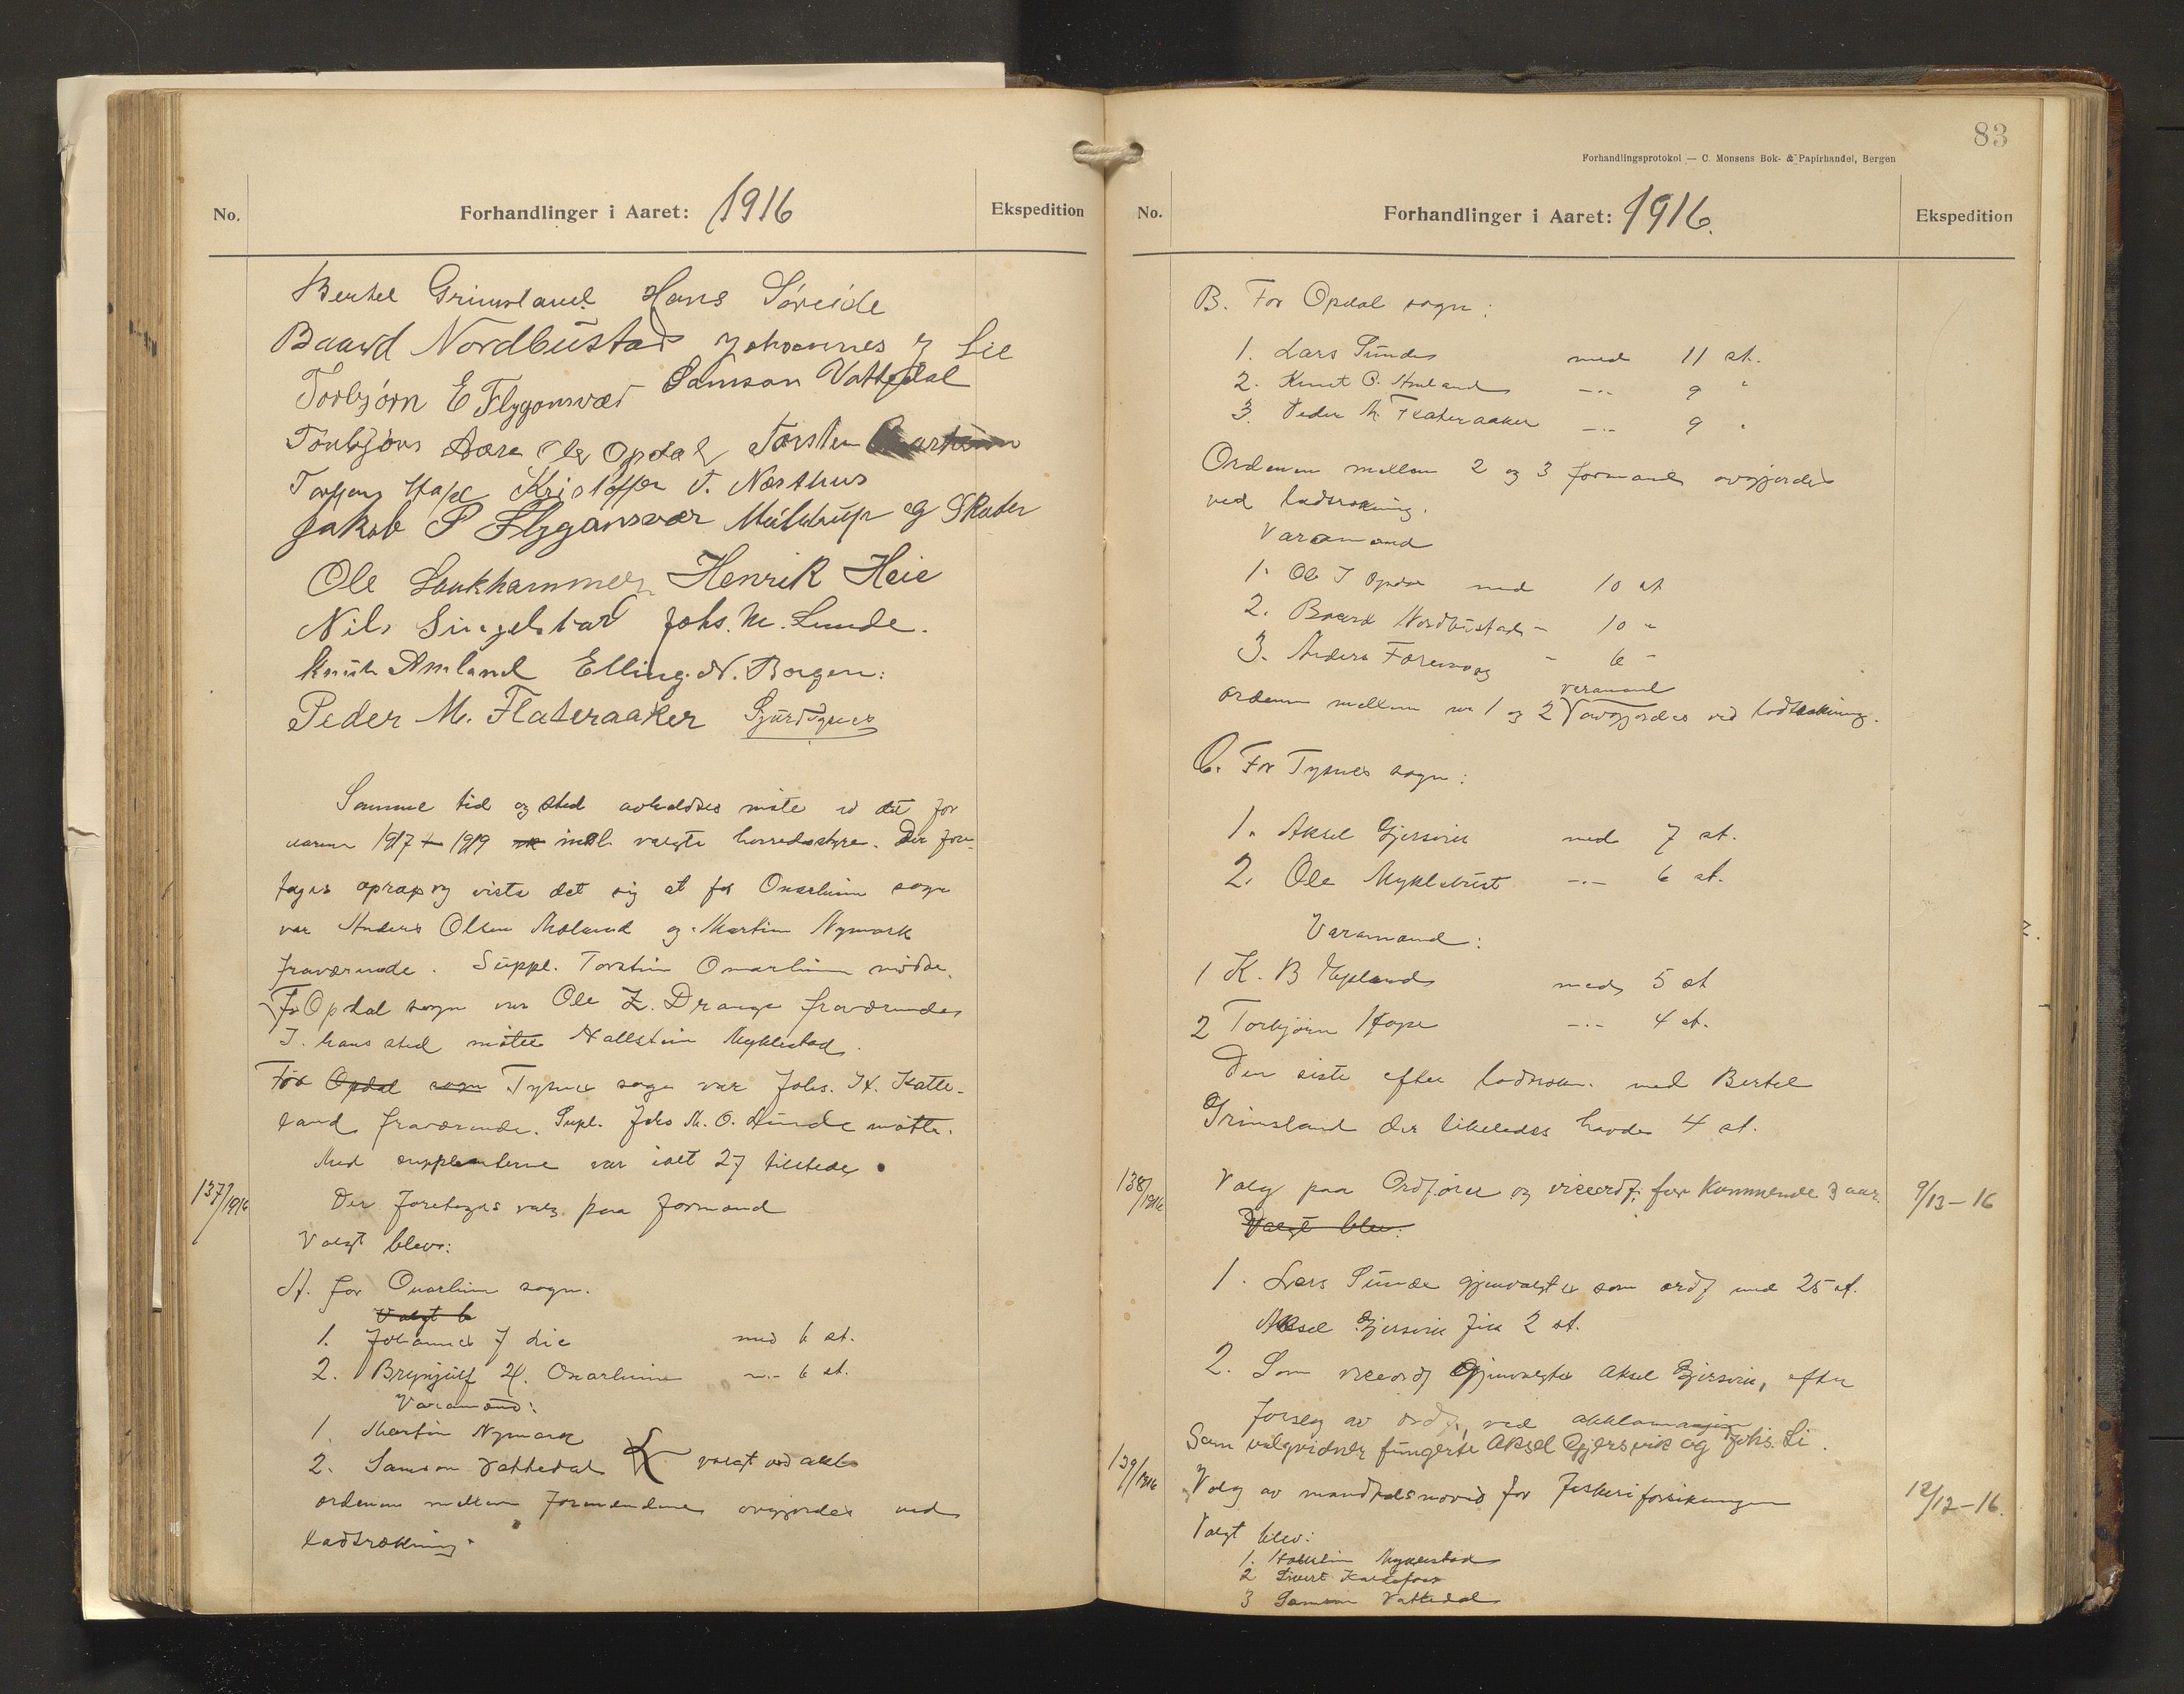 No.
Forhandlinger i Aaret: 1916
Ekspedition
Bertel Grimsland. Hans Søreide
Baard Nordbustad Johannes J Lie
Torbjørn E Flygansvær Samson Vattedal
Torbjørn Aare Ole Opdal Torsten
Torbjørn Hope Kristoffer T. Næsthus
Jakob P Flygansvær og Skaten
Ole Laukhammer Henrik Heie
Nils Singelstad Johs. M. Lunde.
Knut Amland Elling N. Borgen:
Peder M. Flateraaker Sjurd Tysnes
Samme tid og sted avholdtes møte i det for
aarene 1917 – 1919 inkl. valgte herredsstyre. Der fore-
toges oprop og viste det sig at for Onarheim sogn
var Anders Olsen Møland og Martin Nymark
fraværende. Suppl. Torstein Onarheim mødte.
For Opdal sogn var Ole Z. Drange fraværende
I hans sted møtte Hallstein Myklestad.
For Opdal sogn Tysnes sogn var Johs. H. Katte-
land fraværende. Supl. Johs M. O. Lunde møtte.
Med supplenterne var ialt 27 tilstede.
137/1916
Der foretoges valg paa formænd
Valgt blev:
A. for Onarheim sogn.
Valgt b
1. Johannes J Lie med 6 st.
2. Brynjulf H. Onarheim –.– 6 st.
Varamænd:
1. Martin Nymark
2. Samson Vattedal valgt ved akkl.
ordenen mellem formændene avgjordes ved
lodtrækning.
83
Forhandlingsprotokol — C. Monsens Bok- & Papirhandel, Bergen
No.
Forhandlinger i Aaret: 1916.
Ekspedition
B. For Opdal sogn:
1. Lars Sunde med 11 st.
2. Knut O. Amland –.– 9 "
3. Peder M. Flateraaker –.– 9 "
Ordenen mellem 2 og 3 formand avgjordes
ved lodtrækning.
Varamænd
1. Ole J Opdal med 10 st
2. Baard Nordbustad – 10 "
3. Anders Færevaag – 6 –
ordenen mellem nr 1 og 2 varamand avgjordes ved lodtrækning.
C. For Tysnes sogn:
1. Aksel Gjersvik med 7 st.
2. Ole Myklebust –.– 6 st.
Varamænd:
1 K. B. Epland med 5 st
2 Torbjørn Hope –.– 4 st.
Den siste efter lodtrækn. med Bertel
Grimsland der likeledes havde 4 st.
138/1916
Valg paa Ordfører og viceordf. for kommende 3 aar.
9/13–16
Valgt blev:
1. Lars Sunde gjenvalgtes som ordf med 25 st.
Aksel Gjersvik fik 2 st.
2. Som viceordf gjenvalgtes Aksel Gjersvik, efter
forslag av ordf., ved akklamasjon
Som valgvidner fungerte Aksel Gjersvik og Johs. Li.
139/1916
Valg av mandtalsnævnd for fiskeriforsikringen
12/12–16.
Valgt blev:
1. Hallstein Myklestad
2 Sivert
3 Samson Vattedal